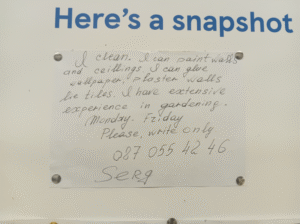 Here's a snapshot
I clean. I can paint walls
and ceilings I can glue
wallpaper, plaster walls
lie tiles. I have extensive
experience in gardening.
(Monday. Friday
Please, write only
087 055 42 46
Serg